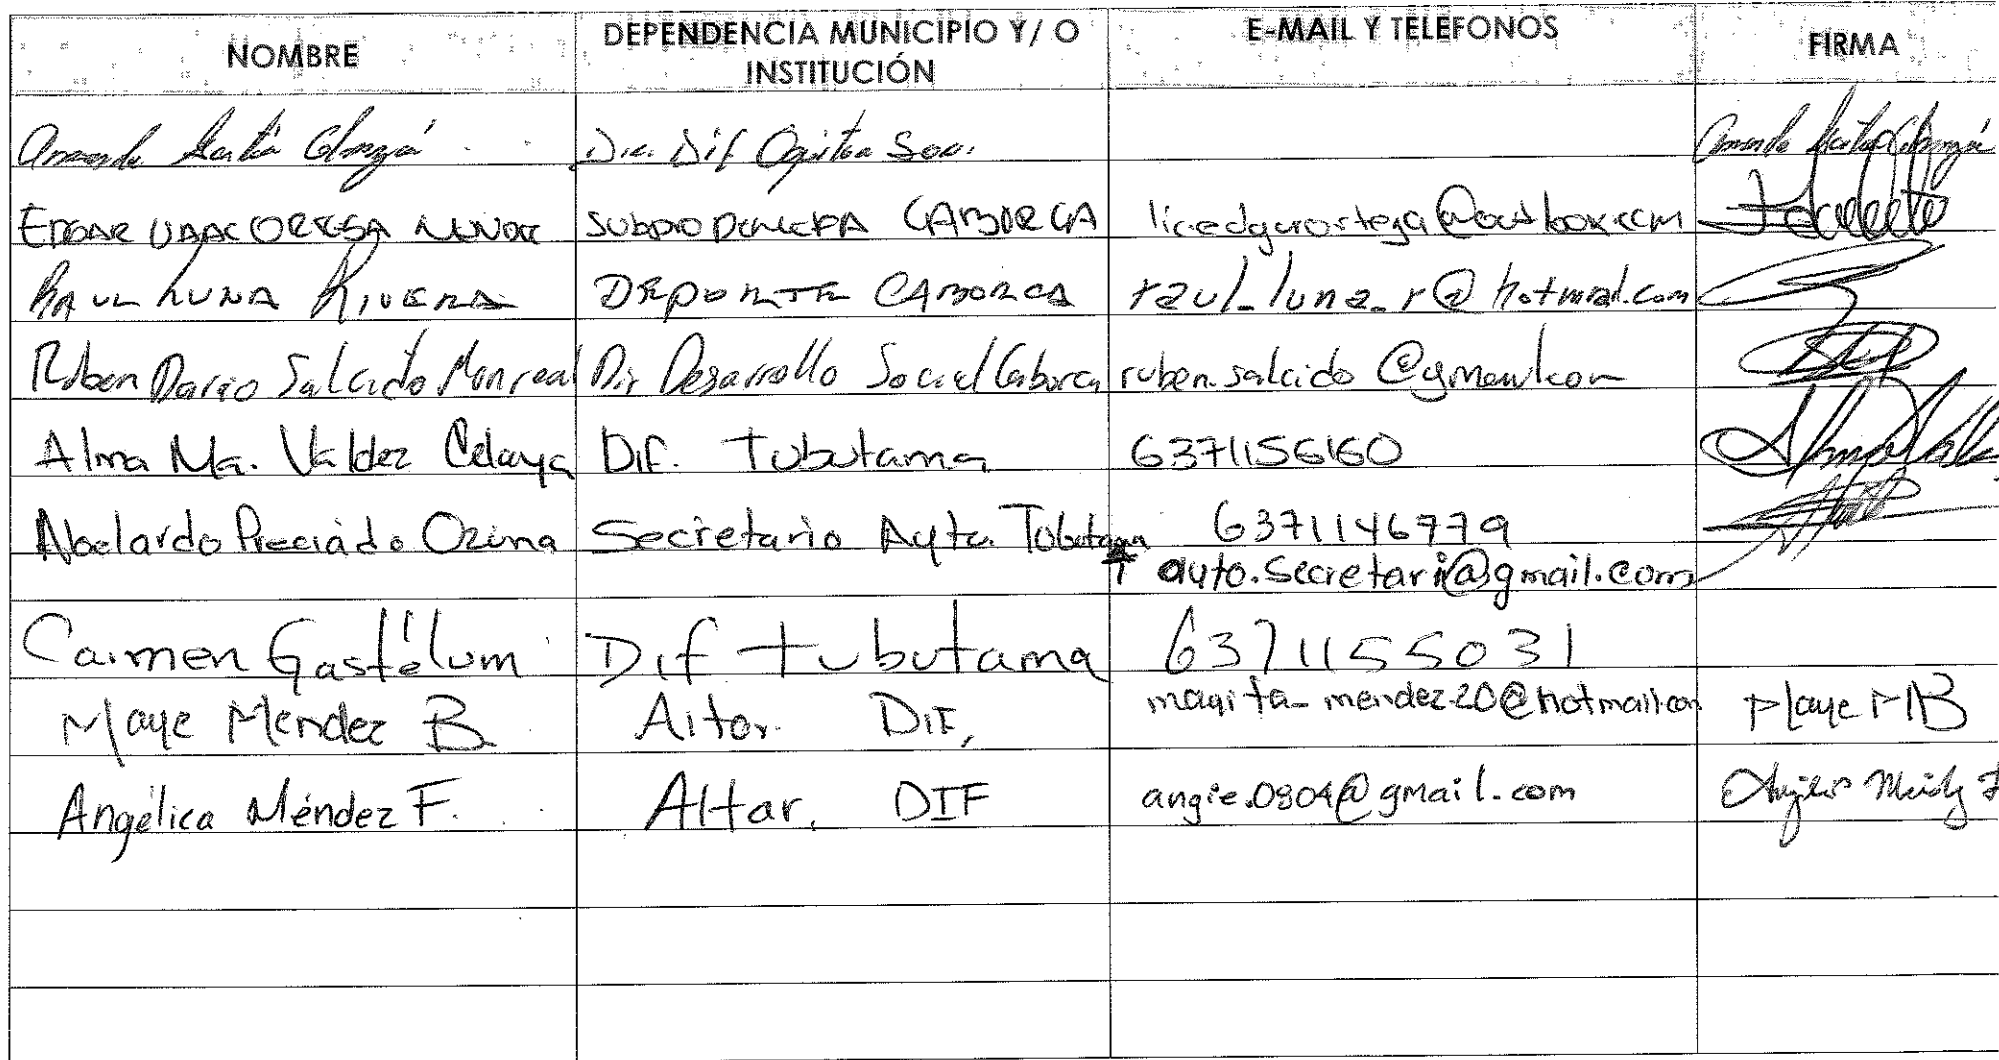 NOMBRE
DEPENDENCIA MUNICIPIO Y/ O
INSTITUCIÓN
E-MAIL Y TELEFONOS
FIRMA
Dir. Dif Oquitoa Son.
EDGAR ORTEGA CABORCA
RAUL LUNA RIVERA DEPORTE CABORCA raul_luna_r@hotmail.com
Ruben Dario Salcido Monreal Dir Desarrollo Social Caborca ruben.salcido@gmail.com
Alma Ma. Valdez Celaya Dif. Tubutama 6371156160
Abelardo Preciado Ozuna Secretario Ayto. Tubutama 6371146779
ayto.secretari@gmail.com
Carmen Gastélum Dif tubutama 6371155031
Maye Mendez B. Altar. DIF, mayita_mendez20@hotmail.com Maye MB
Angélica Méndez F. Altar, DIF angie.0804@gmail.com